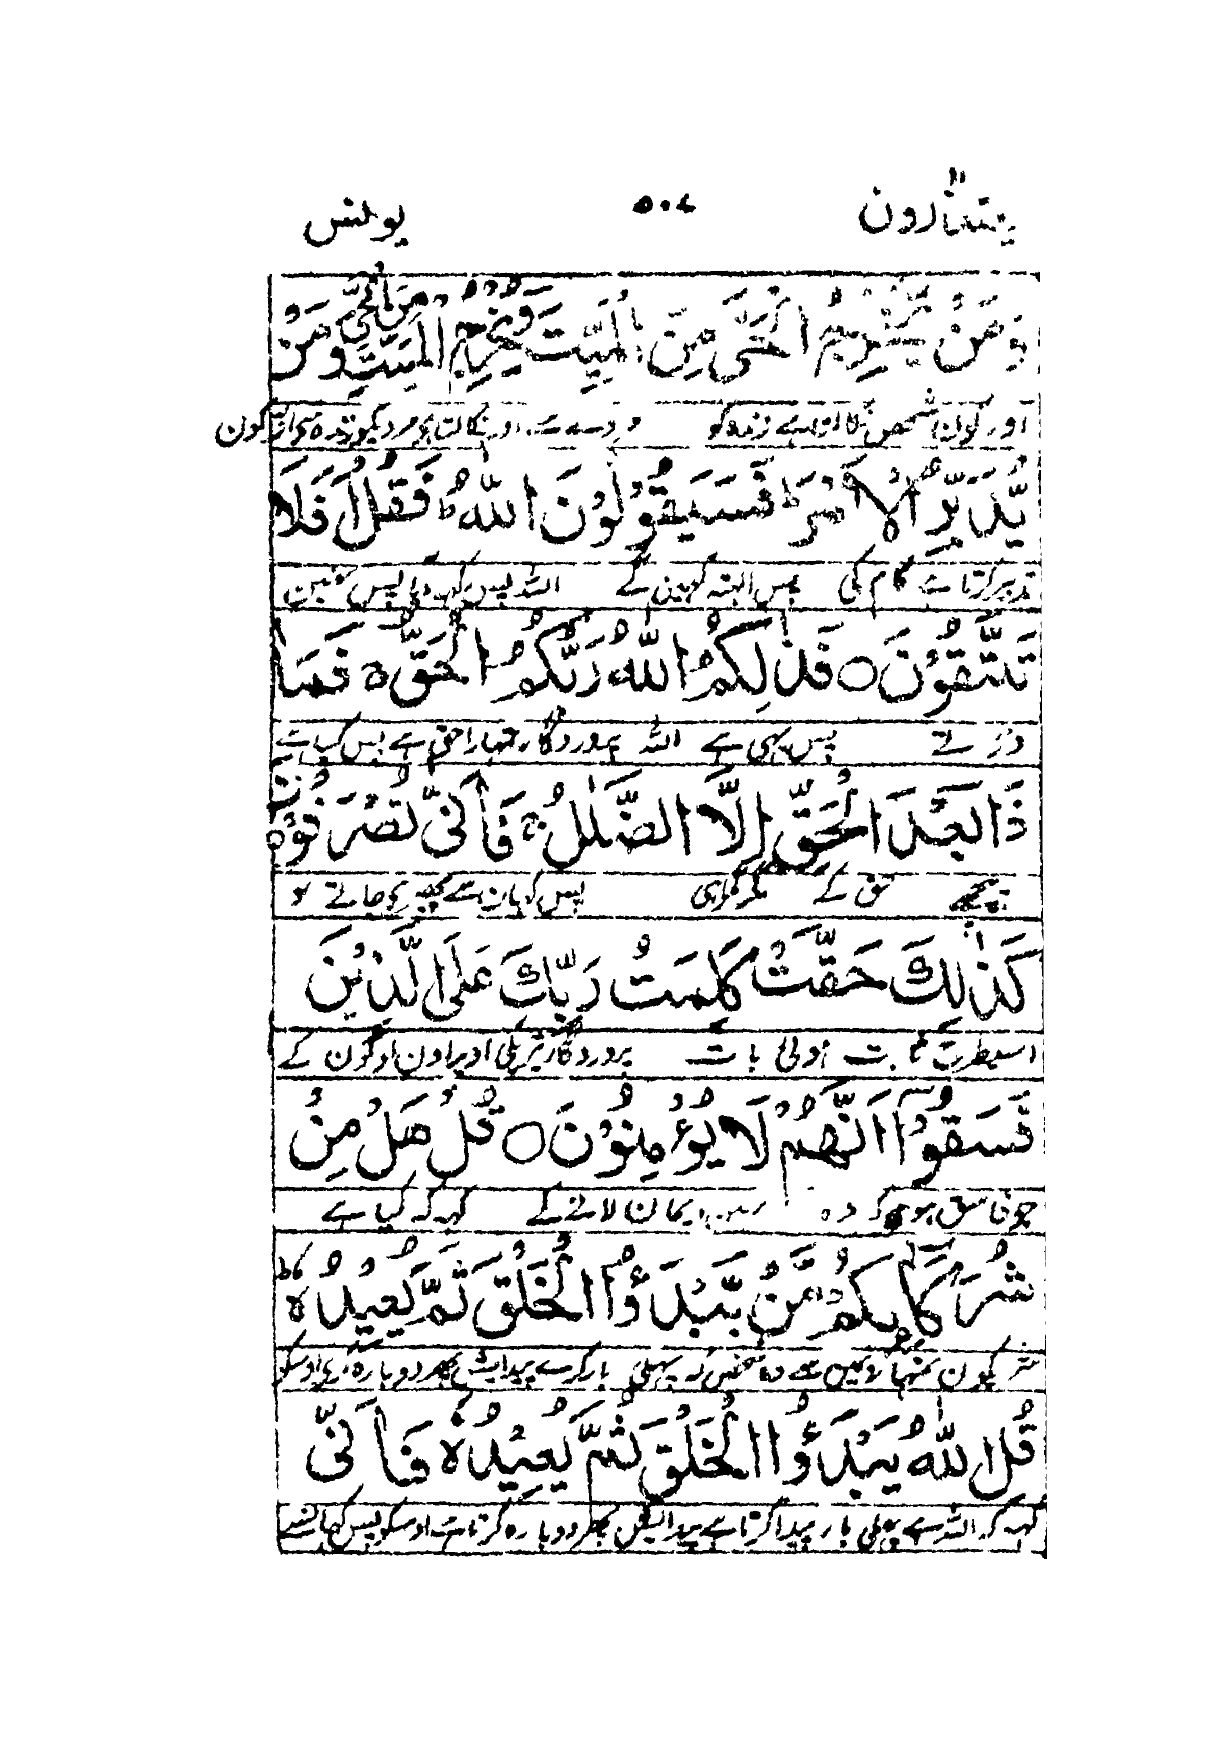 يعتذرون ۵۰۷ يونس
وَمَنْ يُّخْرِجُ الْحَىَّ مِنَ الْمَيِّتِ وَيُخْرِجُ الْمَيِّتَ مِنَ الْحَىِّ وَمَنْ
اور کون شخص نکالتا ہے زندہ کو مردے سے اور نکالتا ہے مردیکو زندہ سے اور کون
يُّدَبِّرُ الْاَمْرَ ؕ فَسَيَقُوْلُوْنَ اللّٰهُ ۚ فَقُلْ اَفَلَا
تدبیر کرتا ہے کام کی پس البتہ کہین گے اللہ پس کہہ کیا پس نہین
تَتَّقُوْنَ ○ فَذٰلِكُمُ اللّٰهُ رَبُّكُمُ الْحَقُّ ۚ فَمَا
ڈرتے پس یہی ہے اللہ پروردگار تمہارا حق ہے پس کیا ہے
ذَا بَعْدَ الْحَقِّ اِلَّا الضَّلٰلُ ۚ فَاَنّٰى تُصْرَفُوْنَ ○
پیچھے حق کے مگر گمراہی پس کہان سے پھیرے جاتے ہو
كَذٰلِكَ حَقَّتْ كَلِمَتُ رَبِّكَ عَلَى الَّذِيْنَ
اسیطرح ثابت ہوئی بات پروردگار تیرے کی اوپر اون لوگون کے
فَسَقُوْۤا اَنَّهُمْ لَا يُؤْمِنُوْنَ ○ قُلْ هَلْ مِنْ
جو فاسق ہوے کہ وہ نہین ایمان لانے کے کہہ کہ کیا ہے
شُرَكَآئِكُمْ مَّنْ يَّبْدَؤُا الْخَلْقَ ثُمَّ يُعِيْدُهٗ ؕ
شریکون تمہارے مین سے وہ شخص کہ پہلی بار کرے پیدایش پھر دوبارہ کرے اوسکو
قُلِ اللّٰهُ يَبْدَؤُا الْخَلْقَ ثُمَّ يُعِيْدُهٗ فَاَنّٰى
کہہ کہ اللہ ہے پہلی بار پیدا کرتا ہے پیدایش پھر دوبارہ کرتا ہے اوسکو پس کہان سے